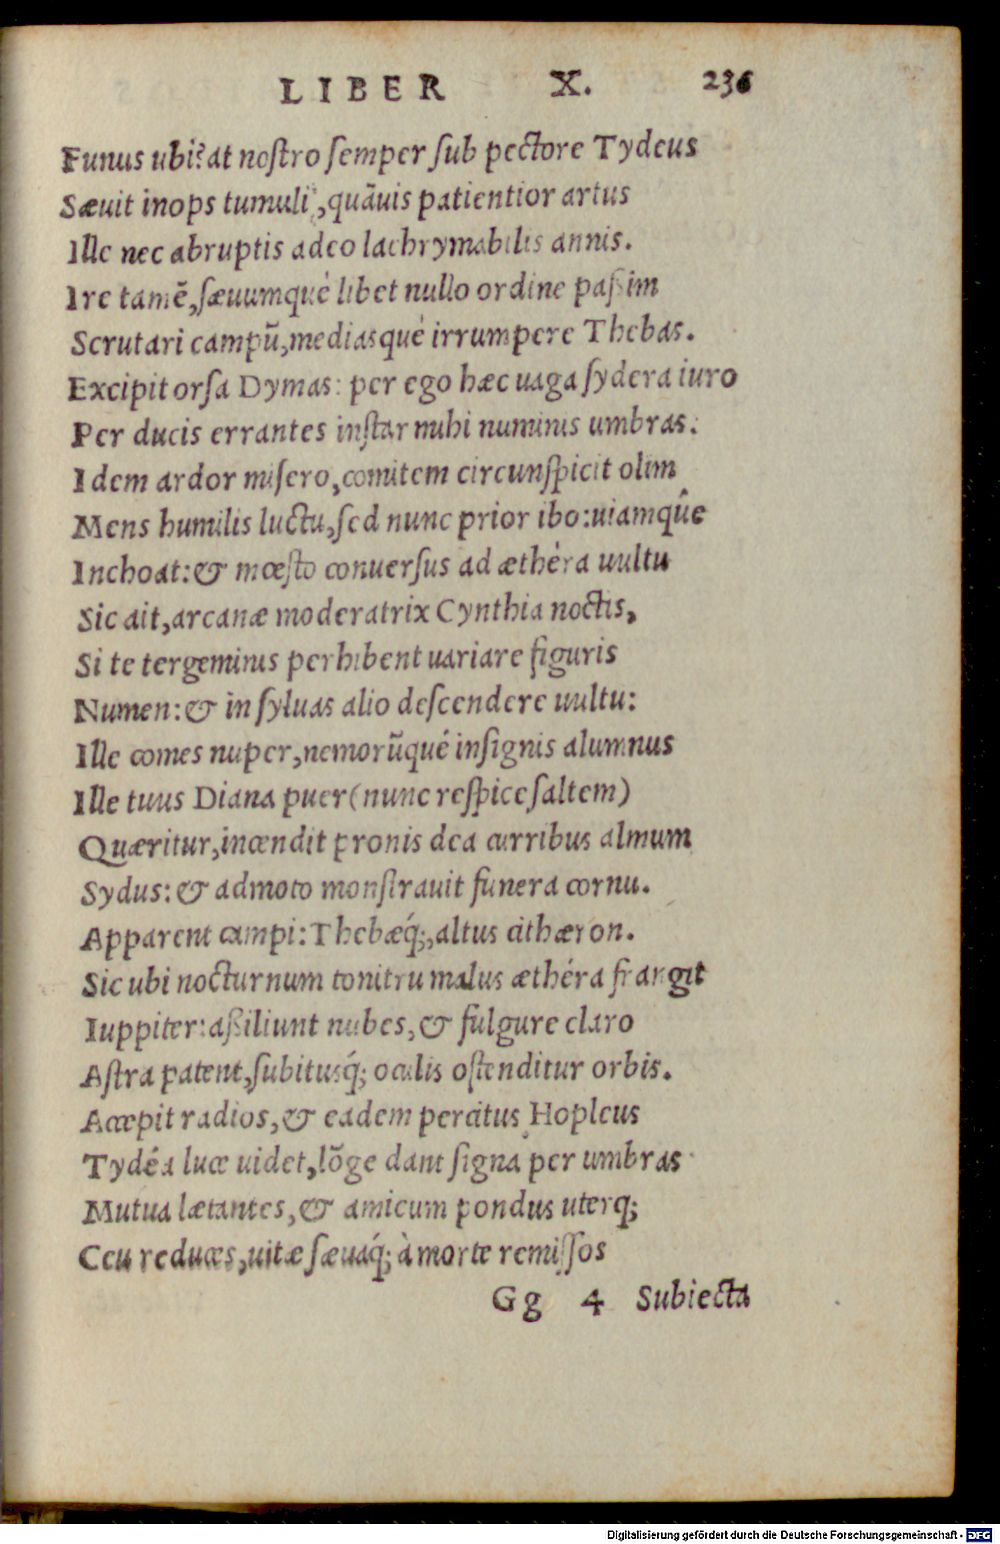 LIBER X. 236
Funus ubi? at nostro semper sub pectore Tydeus
Sæuit inops tumuli, quãuis patientior artus
Ille nec abruptis adeo lachrymabilis annis.
Ire tamẽ, sæuumqué libet nullo ordine passim
Scrutari campũ, mediasqué irrumpere Thebas.
Excipit orsa Dymas: per ego hæc uaga sydera iuro
Per ducis errantes instar mihi numinis umbras:
Idem ardor misero, comitem circunspicit olim
Mens humilis luctu, sed nunc prior ibo: uiamquê
Inchoat: & mœsto conuersus ad æthéra uultu
Sic ait, arcanæ moderatrix Cynthia noctis,
Si te tergeminis perhibent uariare figuris
Numen: & in syluas alio descendere uultu:
Ille comes nuper, nemorũqué insignis alumnus
Ille tuus Diana puer (nunc respice saltem)
Quæritur, incendit pronis dea curribus almum
Sydus: & admoto monstrauit funera cornu.
Apparent campi: Thebæq́;, altus cithæron.
Sic ubi nocturnum tonitru malus æthéra frangit
Iuppiter: assiliunt nubes, & fulgure claro
Astra patent, subitusq́; oculis ostenditur orbis.
Accepit radios, & eadem percitus Hopleus
Tydéa luce uidet, lõge dant signa per umbras
Mutua lætantes, & amicum pondus uterq;
Ceu reduces, uitæ sæuaq́; à morte remissos
Gg 4 Subiecta
Digitalisierung gefördert durch die Deutsche Forschungsgemeinschaft - DFG